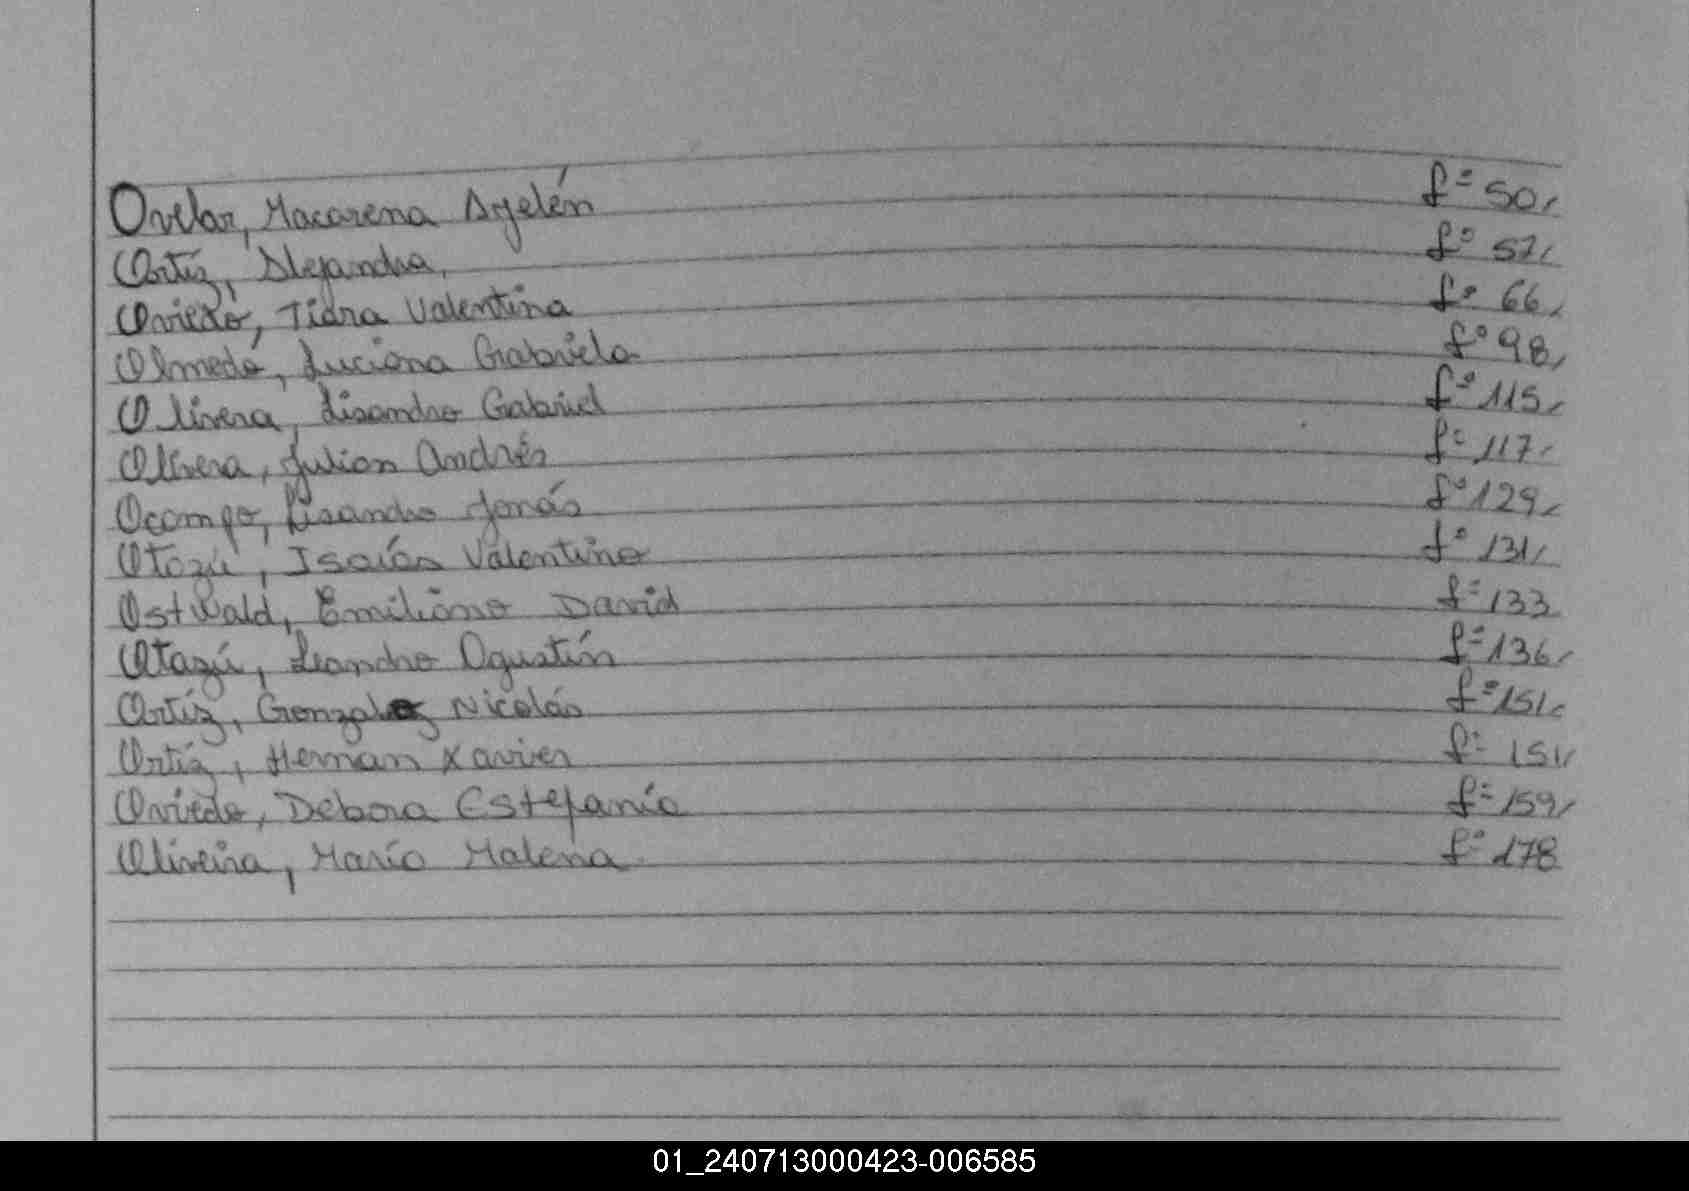 Ovelar, Macarena Ayelén f° 50,
Ortíz, Alejandra, f° 57,
Oviedo, Tiara Valentina f° 66,
Olmedo, Luciana Gabriela f° 98,
Olivera, Lisandro Gabriel f° 115,
Olivera, Julian Andrés f° 117,
Ocampo, Lisandro Jonás f° 129,
Otazú, Isaías Valentino f° 131,
Ostwald, Emiliano David f° 133
Otazú, Leandro Agustín f° 136,
Ortíz, Gonzalez Nicolás f° 151,
Ortíz, Hernan Xavier f° 151,
Oviedo, Debora Estefanía f° 159,
Oliveira, María Malena f° 178
01_240713000423-006585